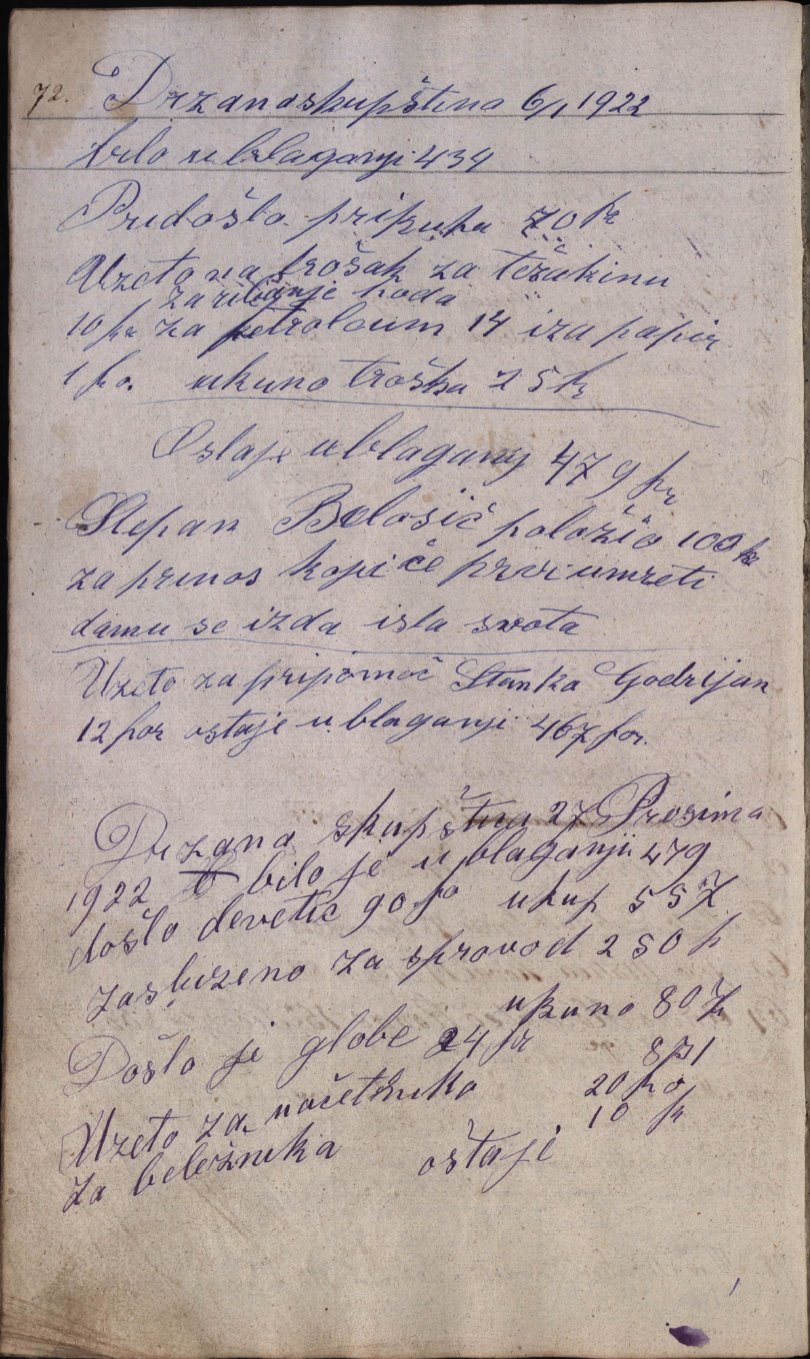 72. Drzana skupština 6/1 1922
bilo u blaganji 434
Pridošlo prikupa 70 fr
Uzeto na trošak za težakinu
za ribanje poda
10 fr za petroleum 14 i za papir
1 fo. ukuno troška 25 fr
Ostaje u blaganji 479 fr
Stepan Belosič položio 100 fr
za prenos kopi če prvi umreti
damu se izda ista svota
Uzeto za pripomoč Stanka Godrijan
12 for ostaje u blaganji 467 for.
Drzana skupština 27 Prosima
1922 bilo je u blaganji 479
došlo devetic 90 fo ukup 557
zasluzeno za sprovod 250 fr
ukuno 807
Došlo je globe 24 fr 831
Uzeto za načetnika 20 fo
za beležnika 10 fr
oštaje